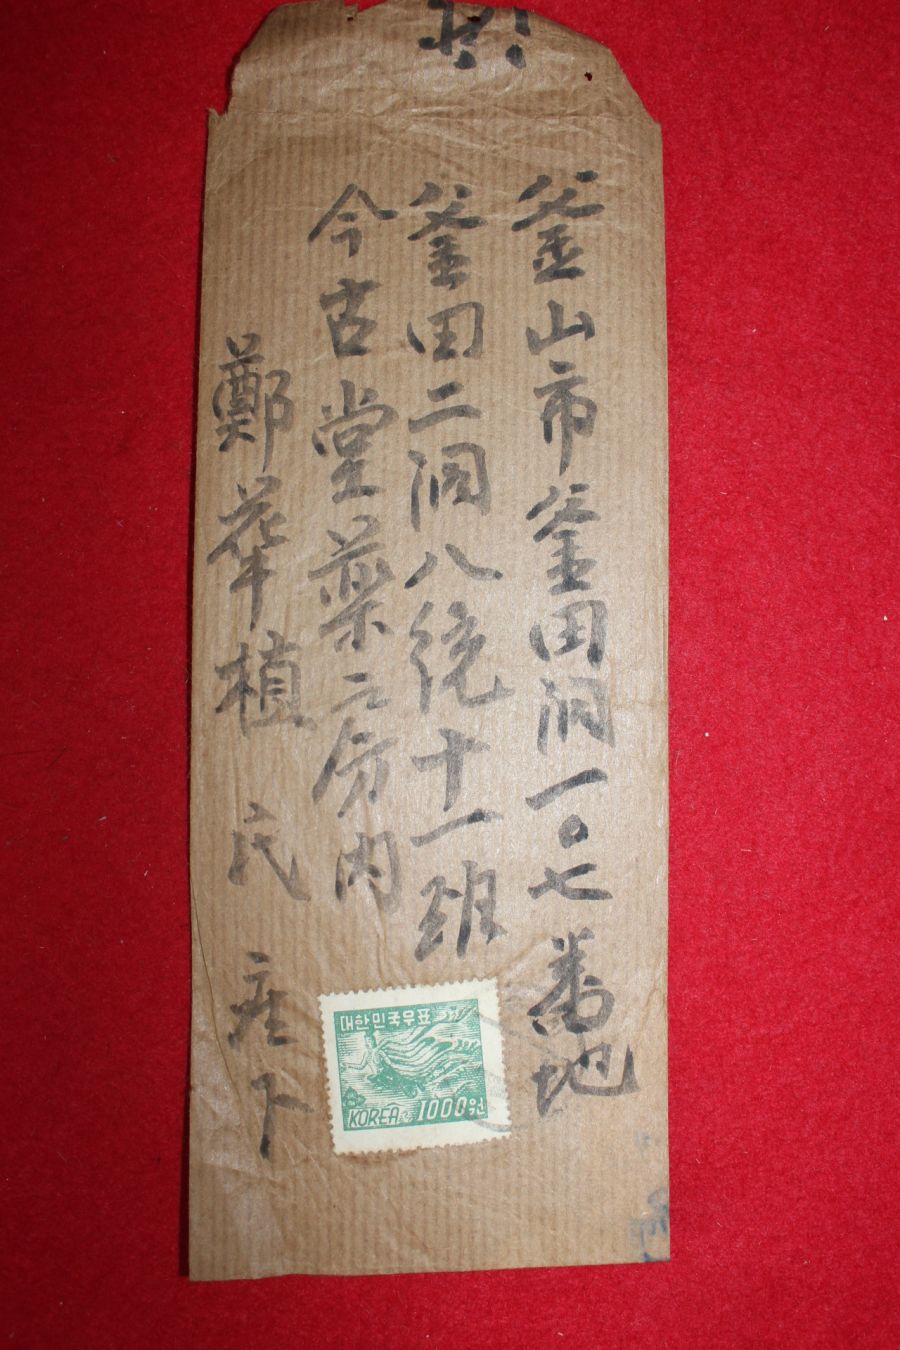 釜山市釜田洞一〇七番地
釜田二洞八統十一班
今古堂藥房内
鄭華植 氏 座下
대한민국우표
KOREA 1000 원